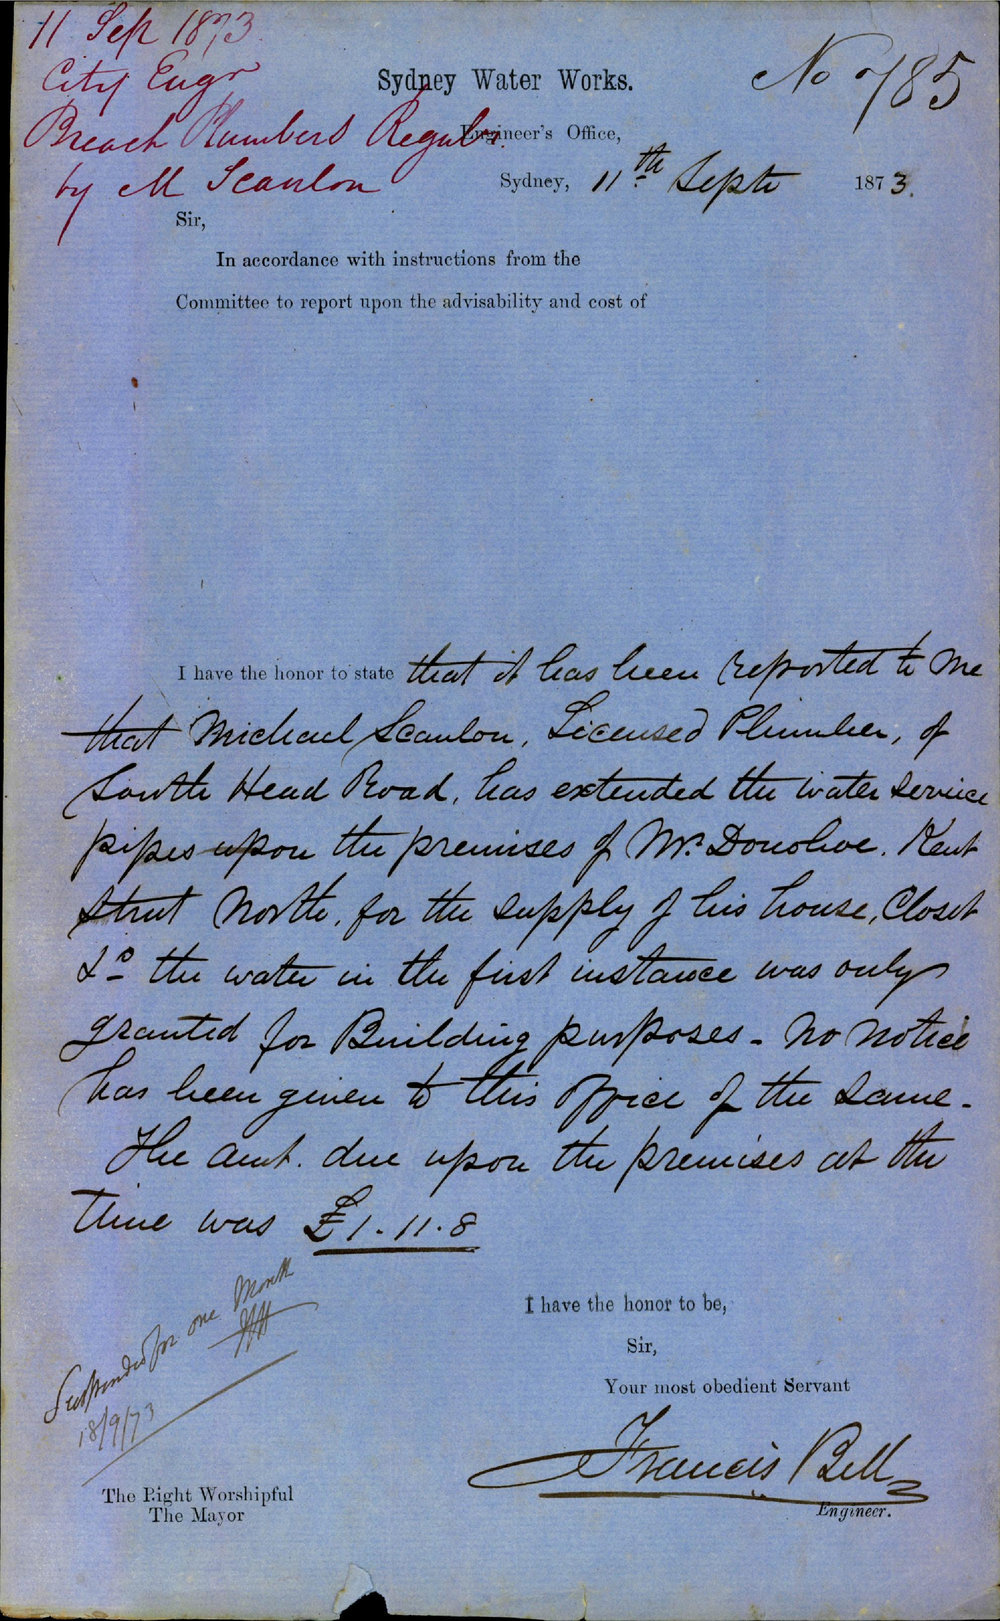 11 Sep 1873
City Engr
Breach Plumbers Regulns.
by M Scanlon
No 785
Sydney Water Works.
Engineer's Office,
Sydney, 11th Septr 1873.
Sir,
In accordance with instructions from the
Committee to report upon the advisability and cost of
I have the honor to state that it has been reported to me
that Michael Scanlon, Licensed Plumber, of
South Head Road, has extended the water service
pipes upon the premises of Mr. Donohoe. Kent
Street North, for the supply of his house, Closet
&c the water in the first instance was only
granted for Building purposes - No notice
has been given to this office of the same -
The amt. due upon the premises at the
time was £1.11.8
Suspended for one Month
18/9/73
I have the honor to be,
Sir,
Your most obedient Servant
Francis Bell
Engineer.
The Right Worshipful
The Mayor